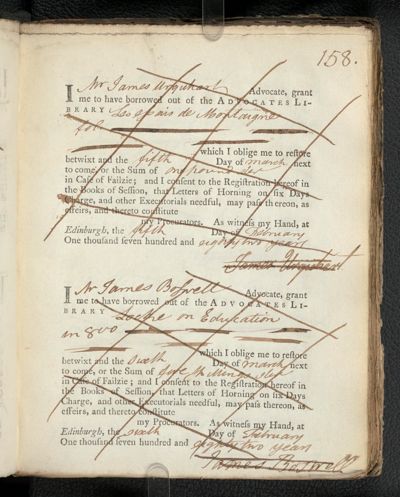 158.
I Mr James Urquhart Advocate, grant
me to have borrowed out of the ADVOCATES LI-
BRARY Les essais de Montaigne
fol
which I oblige me to restore
betwixt and the fifth Day of march next
to come, or the Sum of on pound str
in Case of Failzie; and I consent to the Registration hereof in
the Books of Session, that Letters of Horning on six Days
Charge, and other Executorials needful, may pass thereon, as
effeirs, and thereto constitute
my Procurators. As witness my Hand, at
Edinburgh, the fifth Day of February
One thousand seven hundred and eighty two years
James Urquhart
I Mr James Boswell Advocate, grant
me to have borrowed out of the ADVOCATES LI-
BRARY Locke on Education
in 8vo
which I oblige me to restore
betwixt and the sixth Day of march next
to come, or the Sum of five shillings str
in Case of Failzie; and I consent to the Registration hereof in
the Books of Session, that Letters of Horning on six Days
Charge, and other Executorials needful, may pass thereon, as
effeirs, and thereto constitute
my Procurators. As witness my Hand, at
Edinburgh, the sixth Day of February
One thousand seven hundred and eighty two years
James Boswell